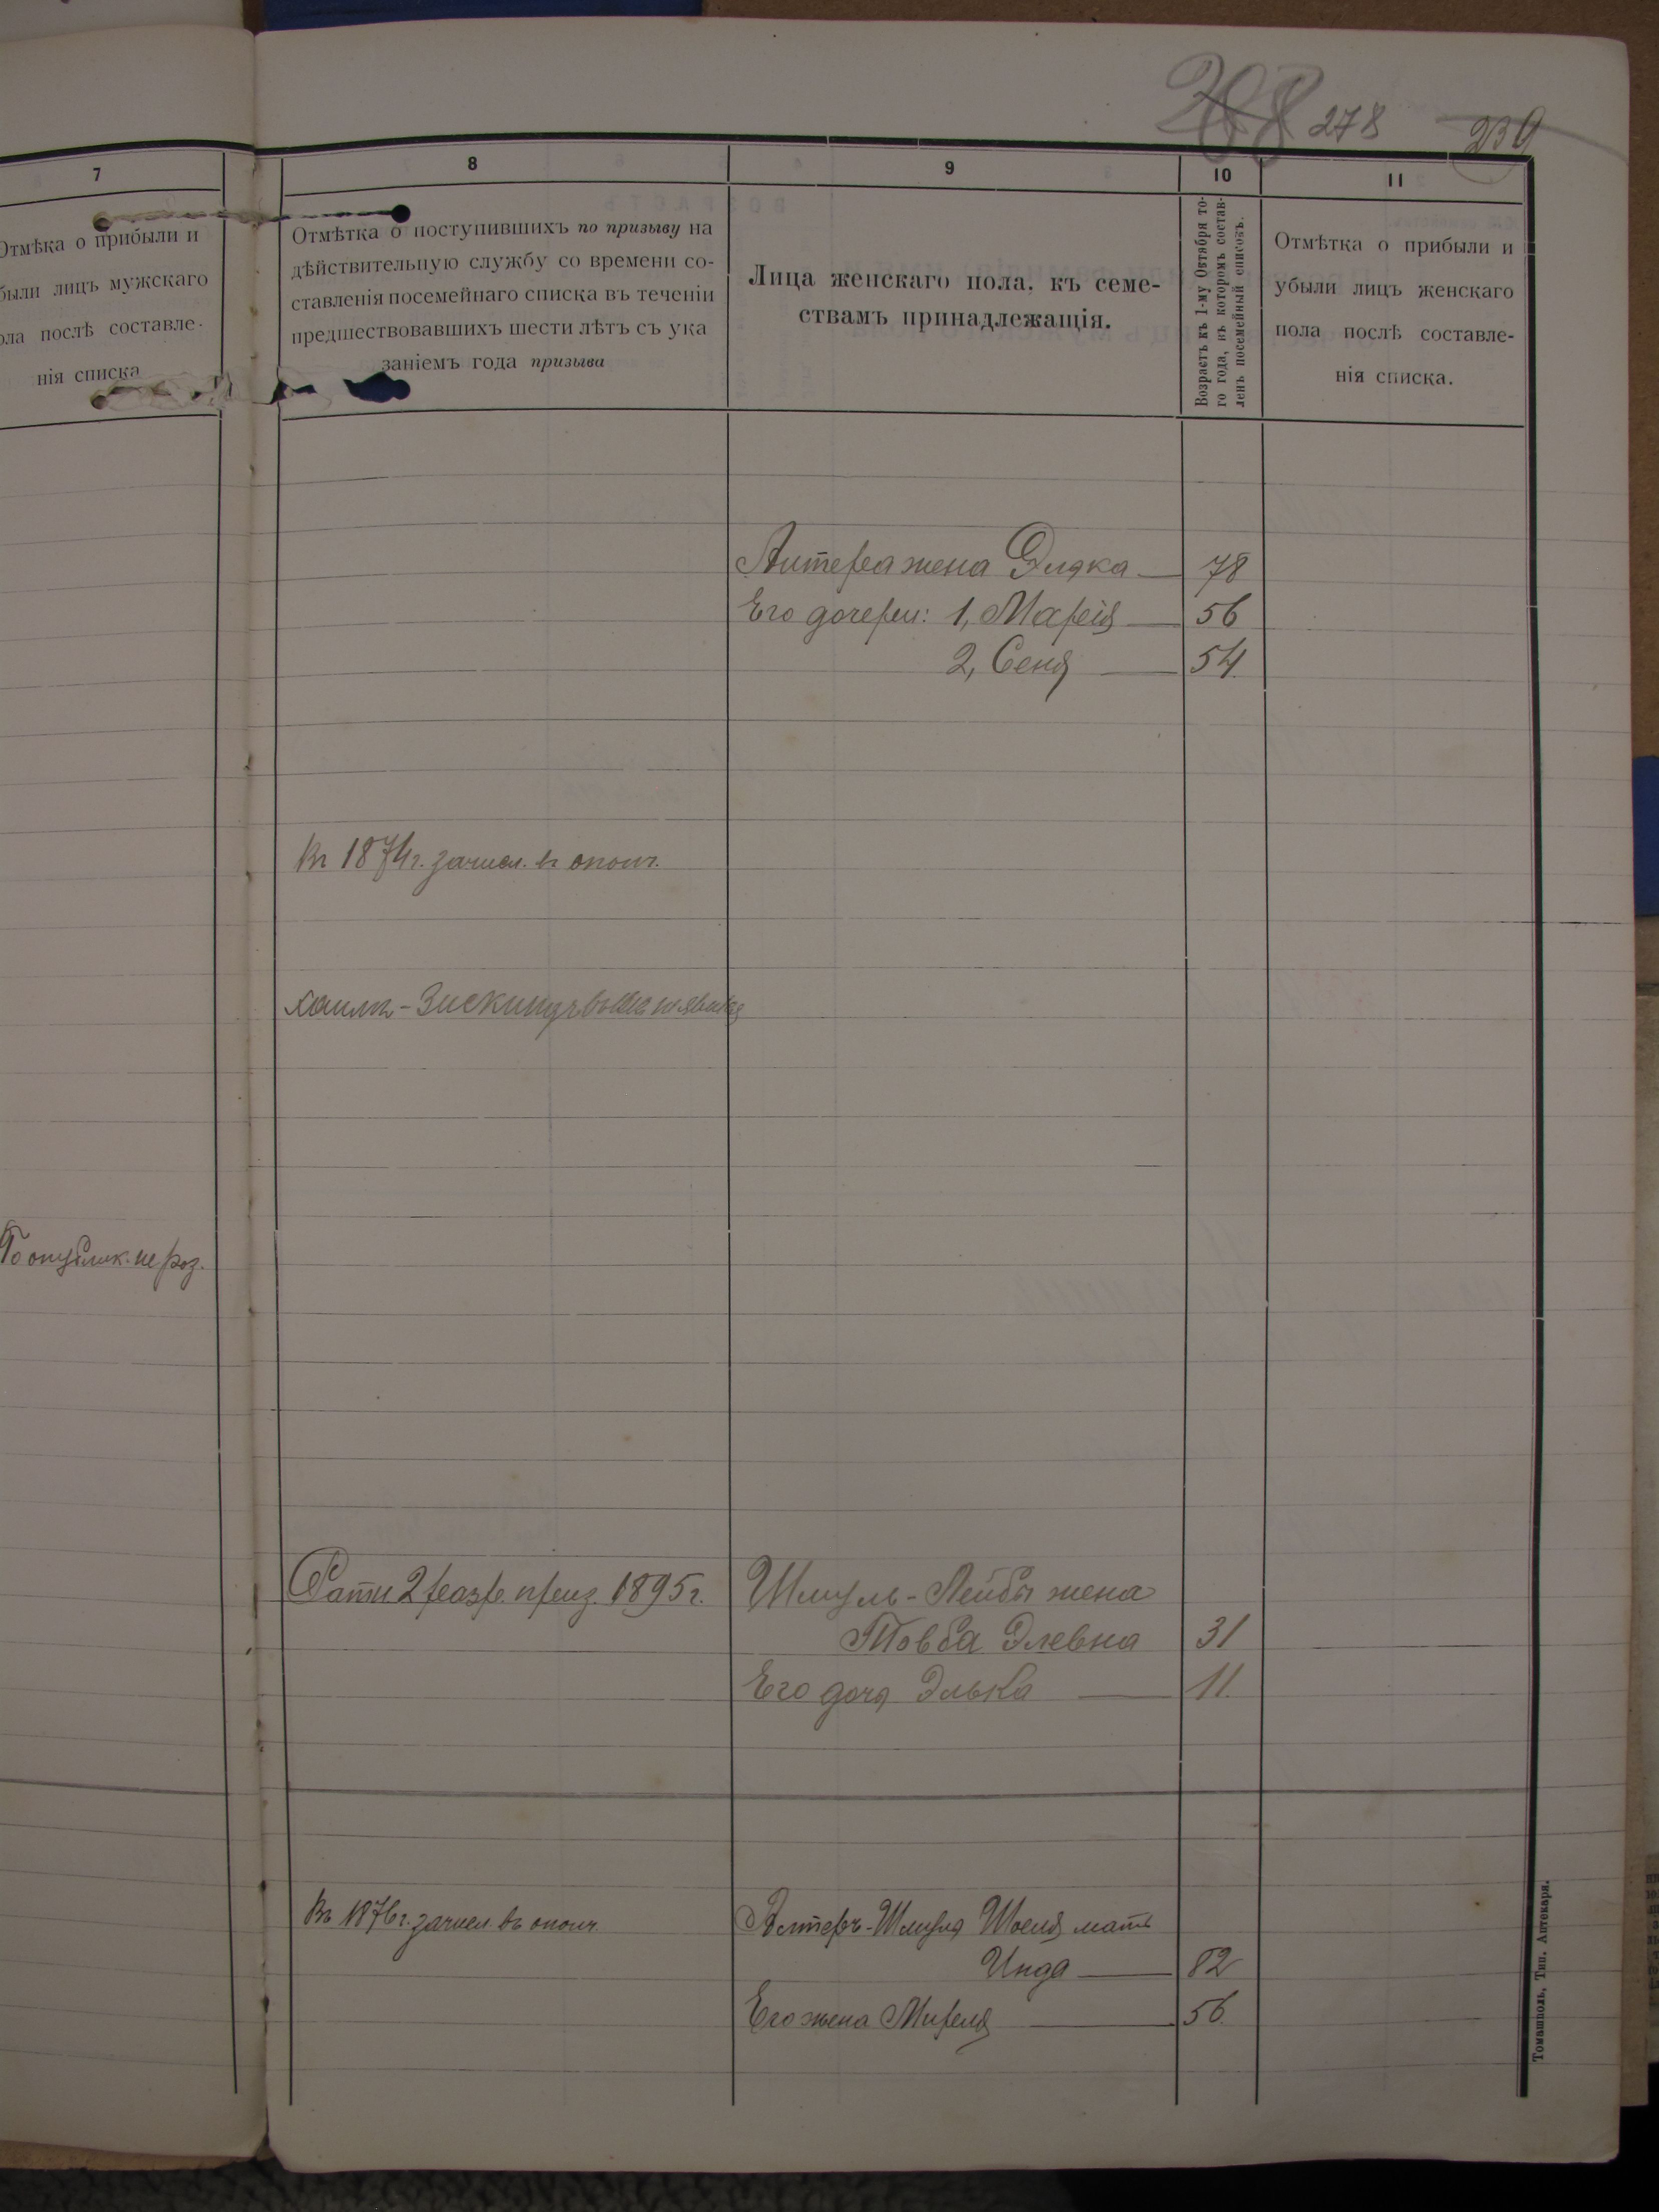 278 239
7
Отмѣка о прибыли и
были лицъ мужскаго
ола послѣ составле-
нія списка
8
Отмѣтка о поступившихъ по призыву на
дѣйствительную службу со времени со-
ставленія посемейнаго списка въ теченіи
предшествовавшихъ шести лѣтъ съ ука
заніемъ года призыва
9
Лица женскаго пола, къ семе-
ствамъ принадлежащія.
10
Возрастъ къ 1-му Октября то-
го года, къ которомъ состав-
ленъ посемейный списокъ.
11
Отмѣтка о прибыли и
убыли лицъ женскаго
пола послѣ составле-
нія списка.
жена 78
Его дочери: 1, Марія 56
2, Сеня 54
Въ 1874 г. зачисл. въ ополч.
Хаимъ-Зискинд
Рати 2 разр. приз. 1895 г.
Шмуль-Лейбы жена
Товба Элевна 31
Его дочь Элька 11
Въ 1876 г. зачисл. въ ополч.
Алтеръ-Шмуля мать
Инда 82
Его жена Миреля 56
Томашполь, Тип. Аптекаря.